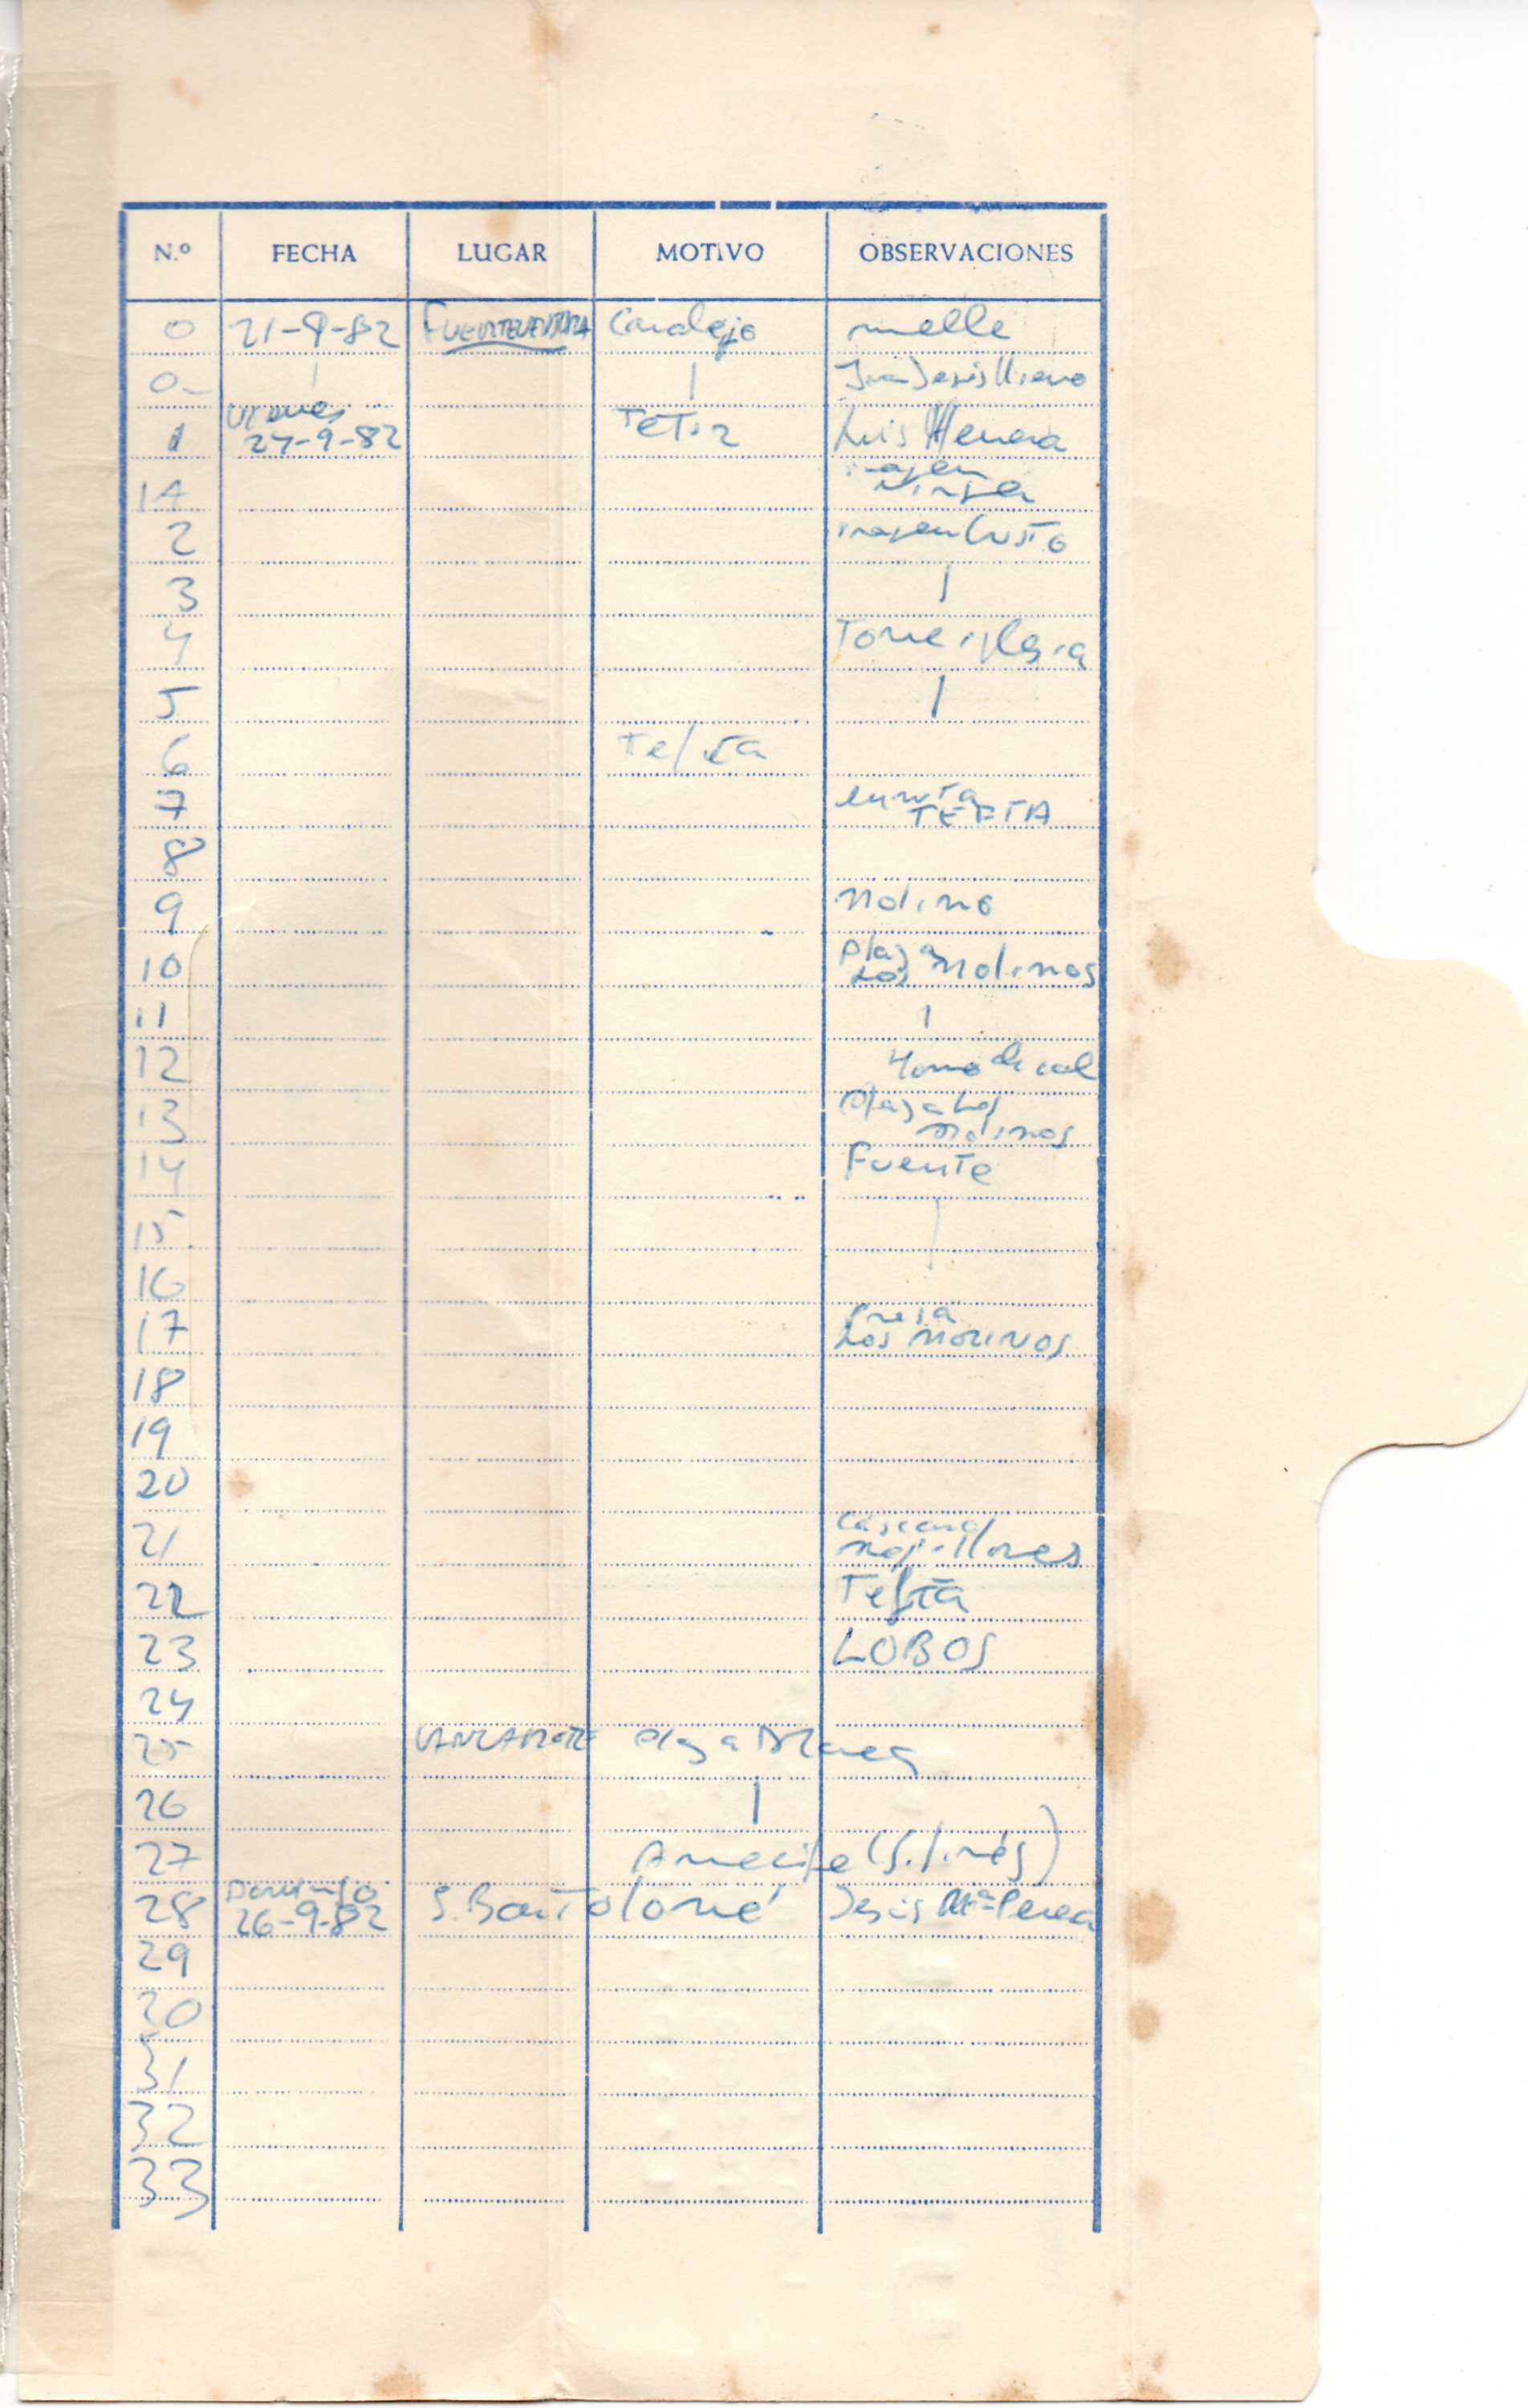 N.º FECHA LUGAR MOTIVO OBSERVACIONES
0 21-9-82 FUERTEVENTURA Corralejo muelle
0
Viernes
1 24-9-82 Tetir Luis Herrera
1A imagen
Virgen
2 imagen Cristo
3
4 Torre iglesia
5
6 Tefía
7 ermita
TEFIA
8
9 Molino
10 Playa
Los Molinos
11
12 Horno de cal
13 Playa Los
Molinos
14 Fuente
15
16
17 Presa
Los MOLINOS
18
19
20
21 Cáscaras
Mejillones
22 Tefía
23 LOBOS
24
25 LANZAROTE Playa Blanca
26
27 Arrecife (S. Ginés)
Domingo
28 26-9-82 S. Bartolomé Jesús Mª Perea
29
30
31
32
33